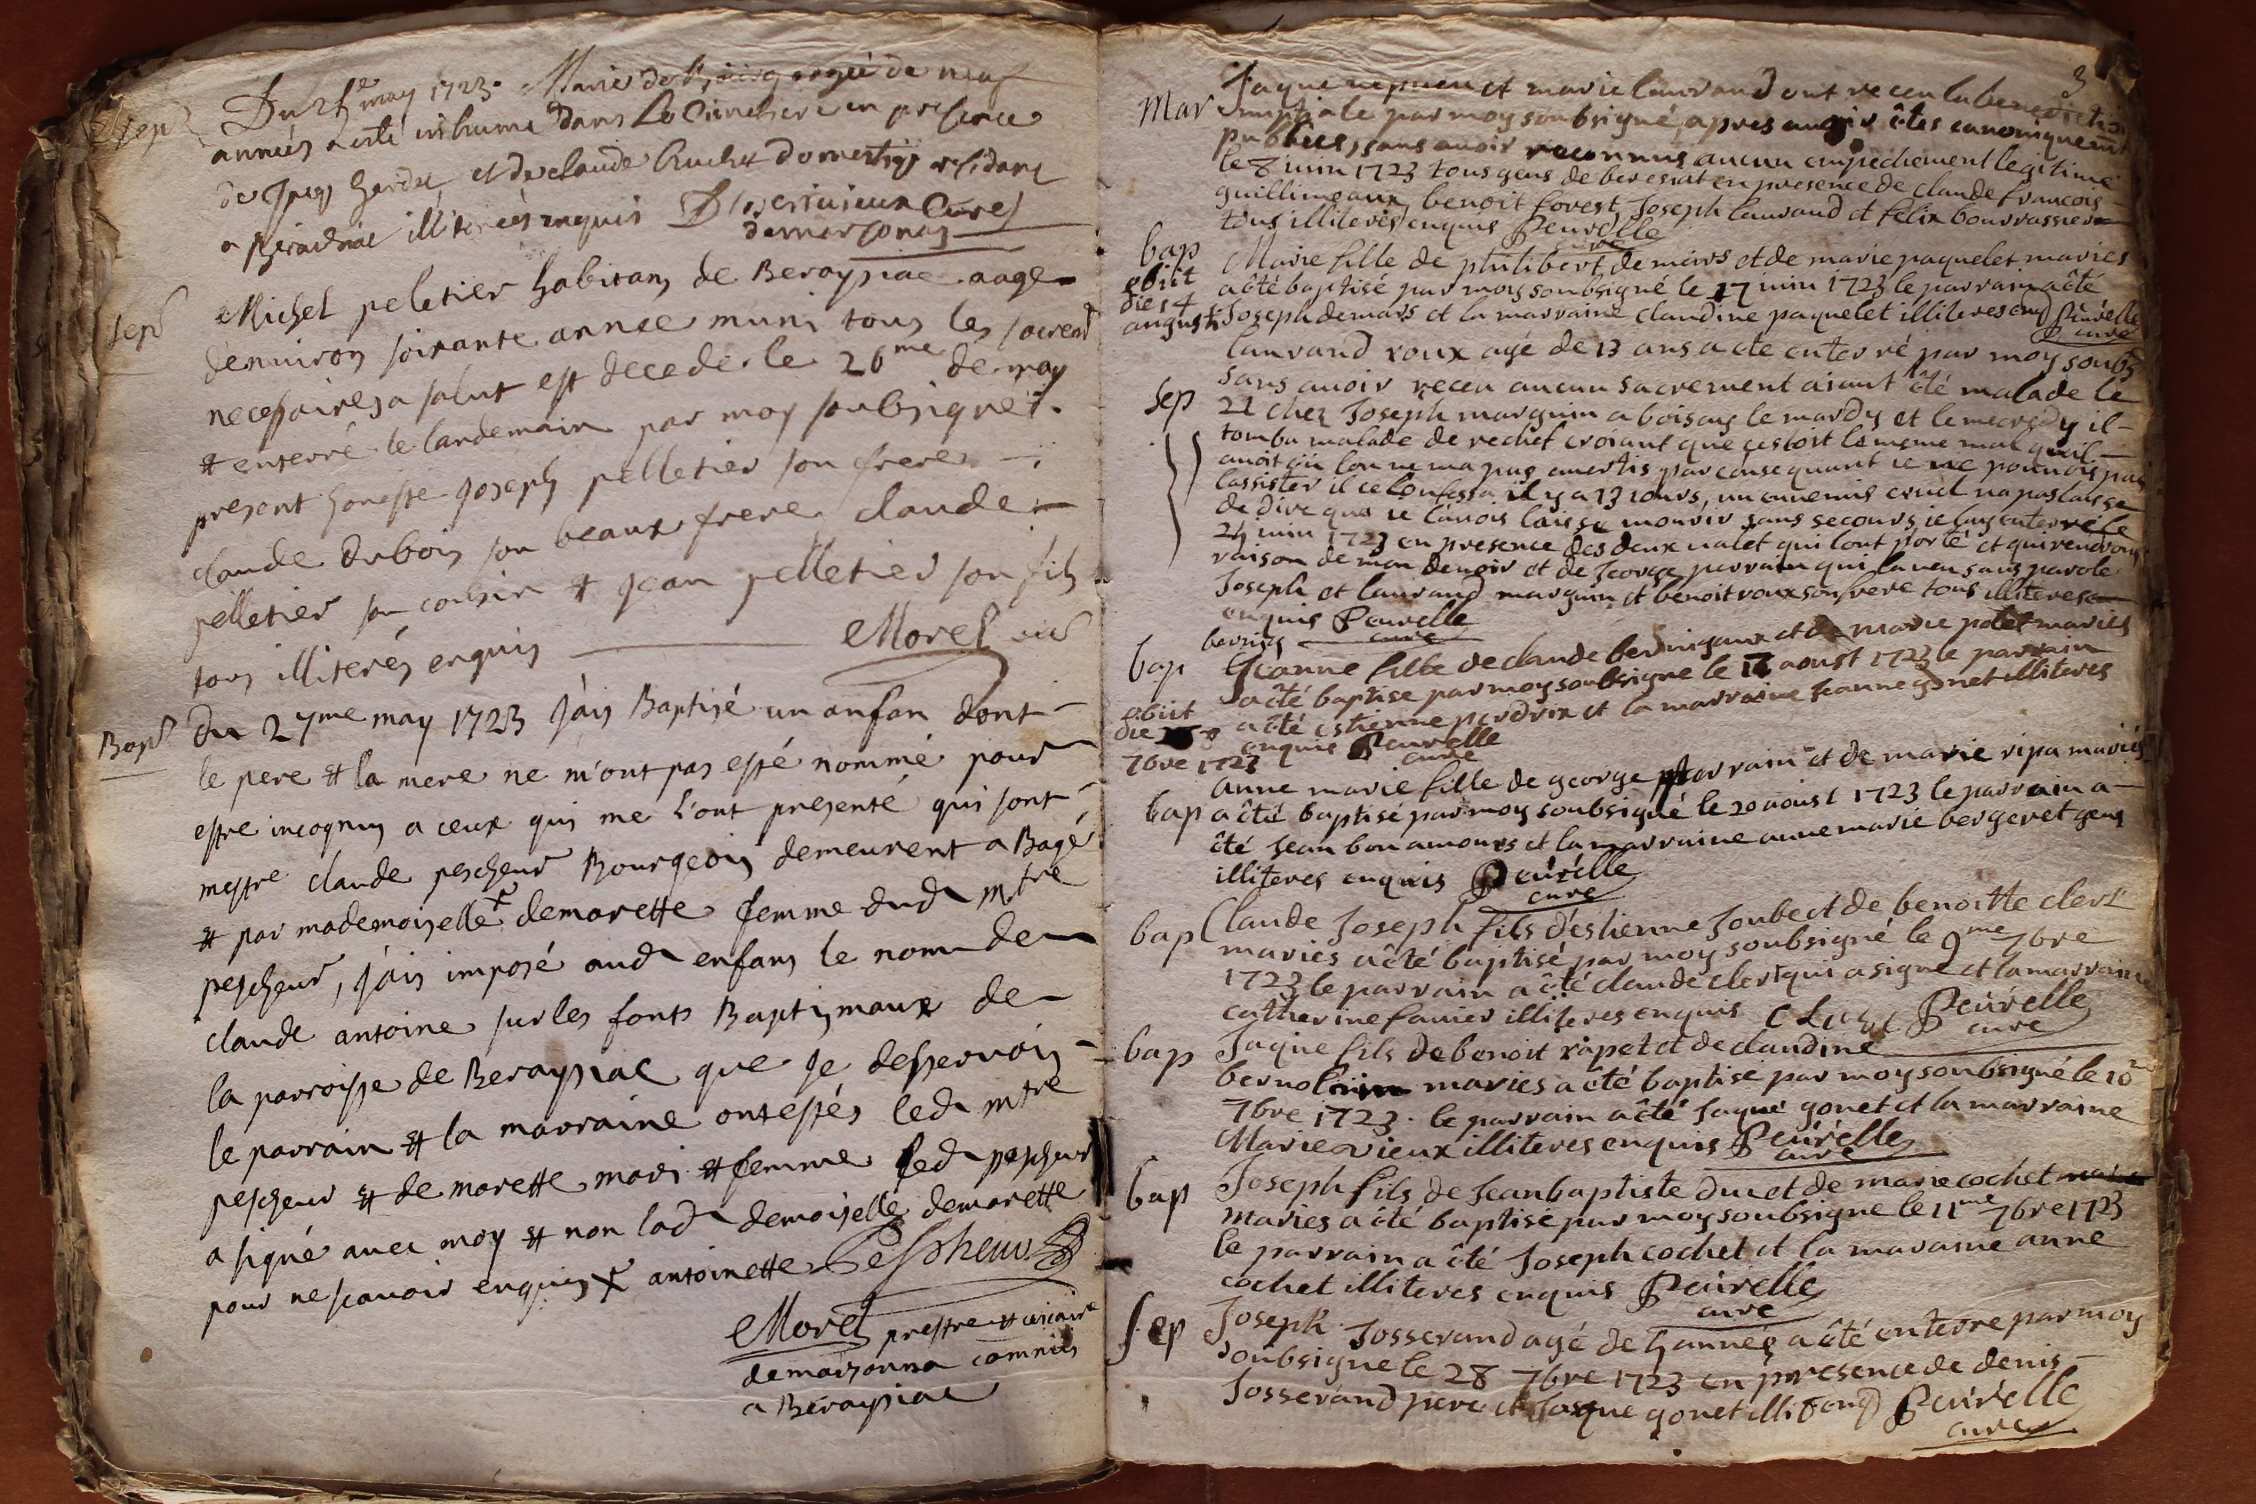 Sep
Du may 1723. Marie de agée de neuf
années a esté inhumé dans Le Cimethere en presence
de et de claude domestiqs residant
a illiterés enquis Curé
Sep
Michel peletier habitans de Beraysiac aage
denuiron soixante annee muni tous les sacremt
necessaires a salut est decede le 26me de may
et enterré le landemain par moy soubsignéz.
present honeste Joseph pelletier son frere
claude dubois son beaux frere claude
pelletier son cousin et Jean pelletier son fils
tous illiterés enquis Morel vic
Bap
du 27me may 1723 j'ais Baptisé un anfan dont
le pere et la mere ne m'ont pas esté nommé pour
estre incognus a ceux qui me l'ont presenté qui sont
meystre claude pescheur Bourgeois demeurent a Bagé
et par mademoiselle x demarette femme dud mtre
pescheur, j'ais imposé aud enfans le nom de
claude antoine sur les fonts Baptismaux de
la parroisse de Beraysiac que je desservois
le parrain et la marraine ont estés led mtre
pescheur et de marette mari et femme led pescheur
a signé auec moy et non lad demoiselle demarette
pour ne scauoir enquis x antoinette Pescheur
Morel prestre et vicaire
commis
a Beraysiac
3
Mar
Jaque et marie laurand ont receu la benediction
nuptiale par moy soubsigné, apres auoir étés canoniquement
publiees, sans auoir reconnus aucun empechement legitime
le 8 iuin 1723 tous gens de en presence de claude francois
guillimeaux, benoit forest, Joseph laurand et felix bourrassier
tous illiteres enquis Peuvelle
curé
bap
obiit
die 14
augusti
Marie fille de philibert de mars et de marie paquelet mariés
a été baptisé par moy soubsigné le 17 iuin 1723 le parrain a été
Joseph demars et la marraine claudine paquelet illiteres enq Peuvelle
curé
sep
laurand roux agé de 13 ans a ete enterré par moy soubs
sans auoir receu aucun sacrement aiant été malade le
21 chez Joseph marguin a boisay le mardy et le mecredy il
tomba malade de rechef croiant que cestoit le meme mal quil
auoit eü lon ne ma pas auertis par consequant ie ne pouuois pas
lassister il ce Confessa il y a 13 iours, un ennemis cruel na pas laissé
de dire que ie lauois laissé mourir sans secours, ie lay enterré le
24 iuin 1723 en presence des deux ualet qui lont porté et qui rendront
raison de mon deuoir et de George perrain qui la ueu sans parole
Joseph et laurand marguin et benoit roux son frere tous illiteres
enquis Peuvelle
curé
bap
obiit
die 8
7bre 1723
Jeanne fille de claude et de marie potet mariés
a été baptise par moy soubsigne le 17 aoust 1723 le parrain
a été estienne perdrix et la marraine Jeanne gonet illiteres
enquis Peuvelle
curé
bap
anne marie fille de george perrain et de marie ripa mariés
a été baptisé par moy soubsigné le 20 aoust 1723 le parrain a
été Jean bonamours et la marraine anne marie bergeret gens
illiteres enquis Peuvelle
curé
bap
Claude Joseph fils d'estienne Joubert de benoitte clert
mariés a été baptisé par moy soubsigné le 9me 7bre
1723 le parrain a été claude clert qui a signé et la marraine
catherine fauier illiteres enquis Peuvelle
curé
bap
Jaque fils de benoit rapet et de claudine
mariés a été baptise par moy soubsigné le 10me
7bre 1723. le parrain a été Jaque gonet et la marraine
Marie vieux illiteres enquis Peuvelle
curé
bap
Joseph fils de Jean baptiste duc et de marie cochet
mariés a été baptisé par moy soubsigne le 11me 7bre 1723
le parrain a été Joseph cochet et la maraine anne
cochet illiteres enquis Peuvelle
curé
sep
Joseph Josserand agé de 5 années a été enterre par moy
soubsigne le 28 7bre 1723 en presence de denis
Josserand pere et Jaque gonet illit enq Peuvelle
curé